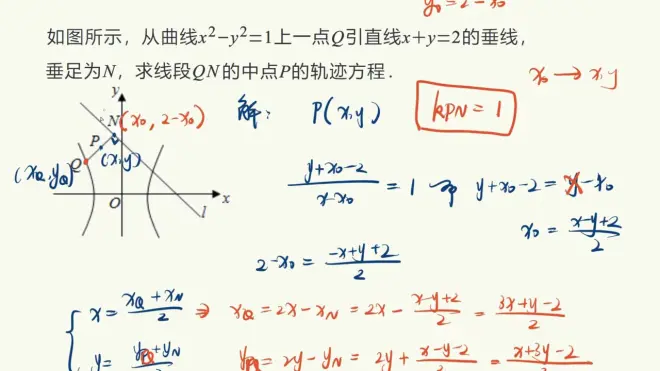 y₀=2-x₀
如图所示，从曲线x²-y²=1上一点Q引直线x+y=2的垂线，
垂足为N，求线段QN的中点P的轨迹方程．
x₀ → x,y
y
N (x₀, 2-x₀)
解： P(x,y) kPN = 1
P
Q (x,y)
(xQ,yQ)
O x
l
(y+x₀-2)/(x-x₀) = 1 ⇒ y+x₀-2 = x-x₀
x₀ = (x-y+2)/2
2-x₀ = (-x+y+2)/2
x = (xQ+xN)/2 ⇒ xQ = 2x-xN = 2x-(x-y+2)/2 = (3x+y-2)/2
y = (yQ+yN)/2 yQ = 2y-yN = 2y+(x-y-2)/2 = (x+3y-2)/2